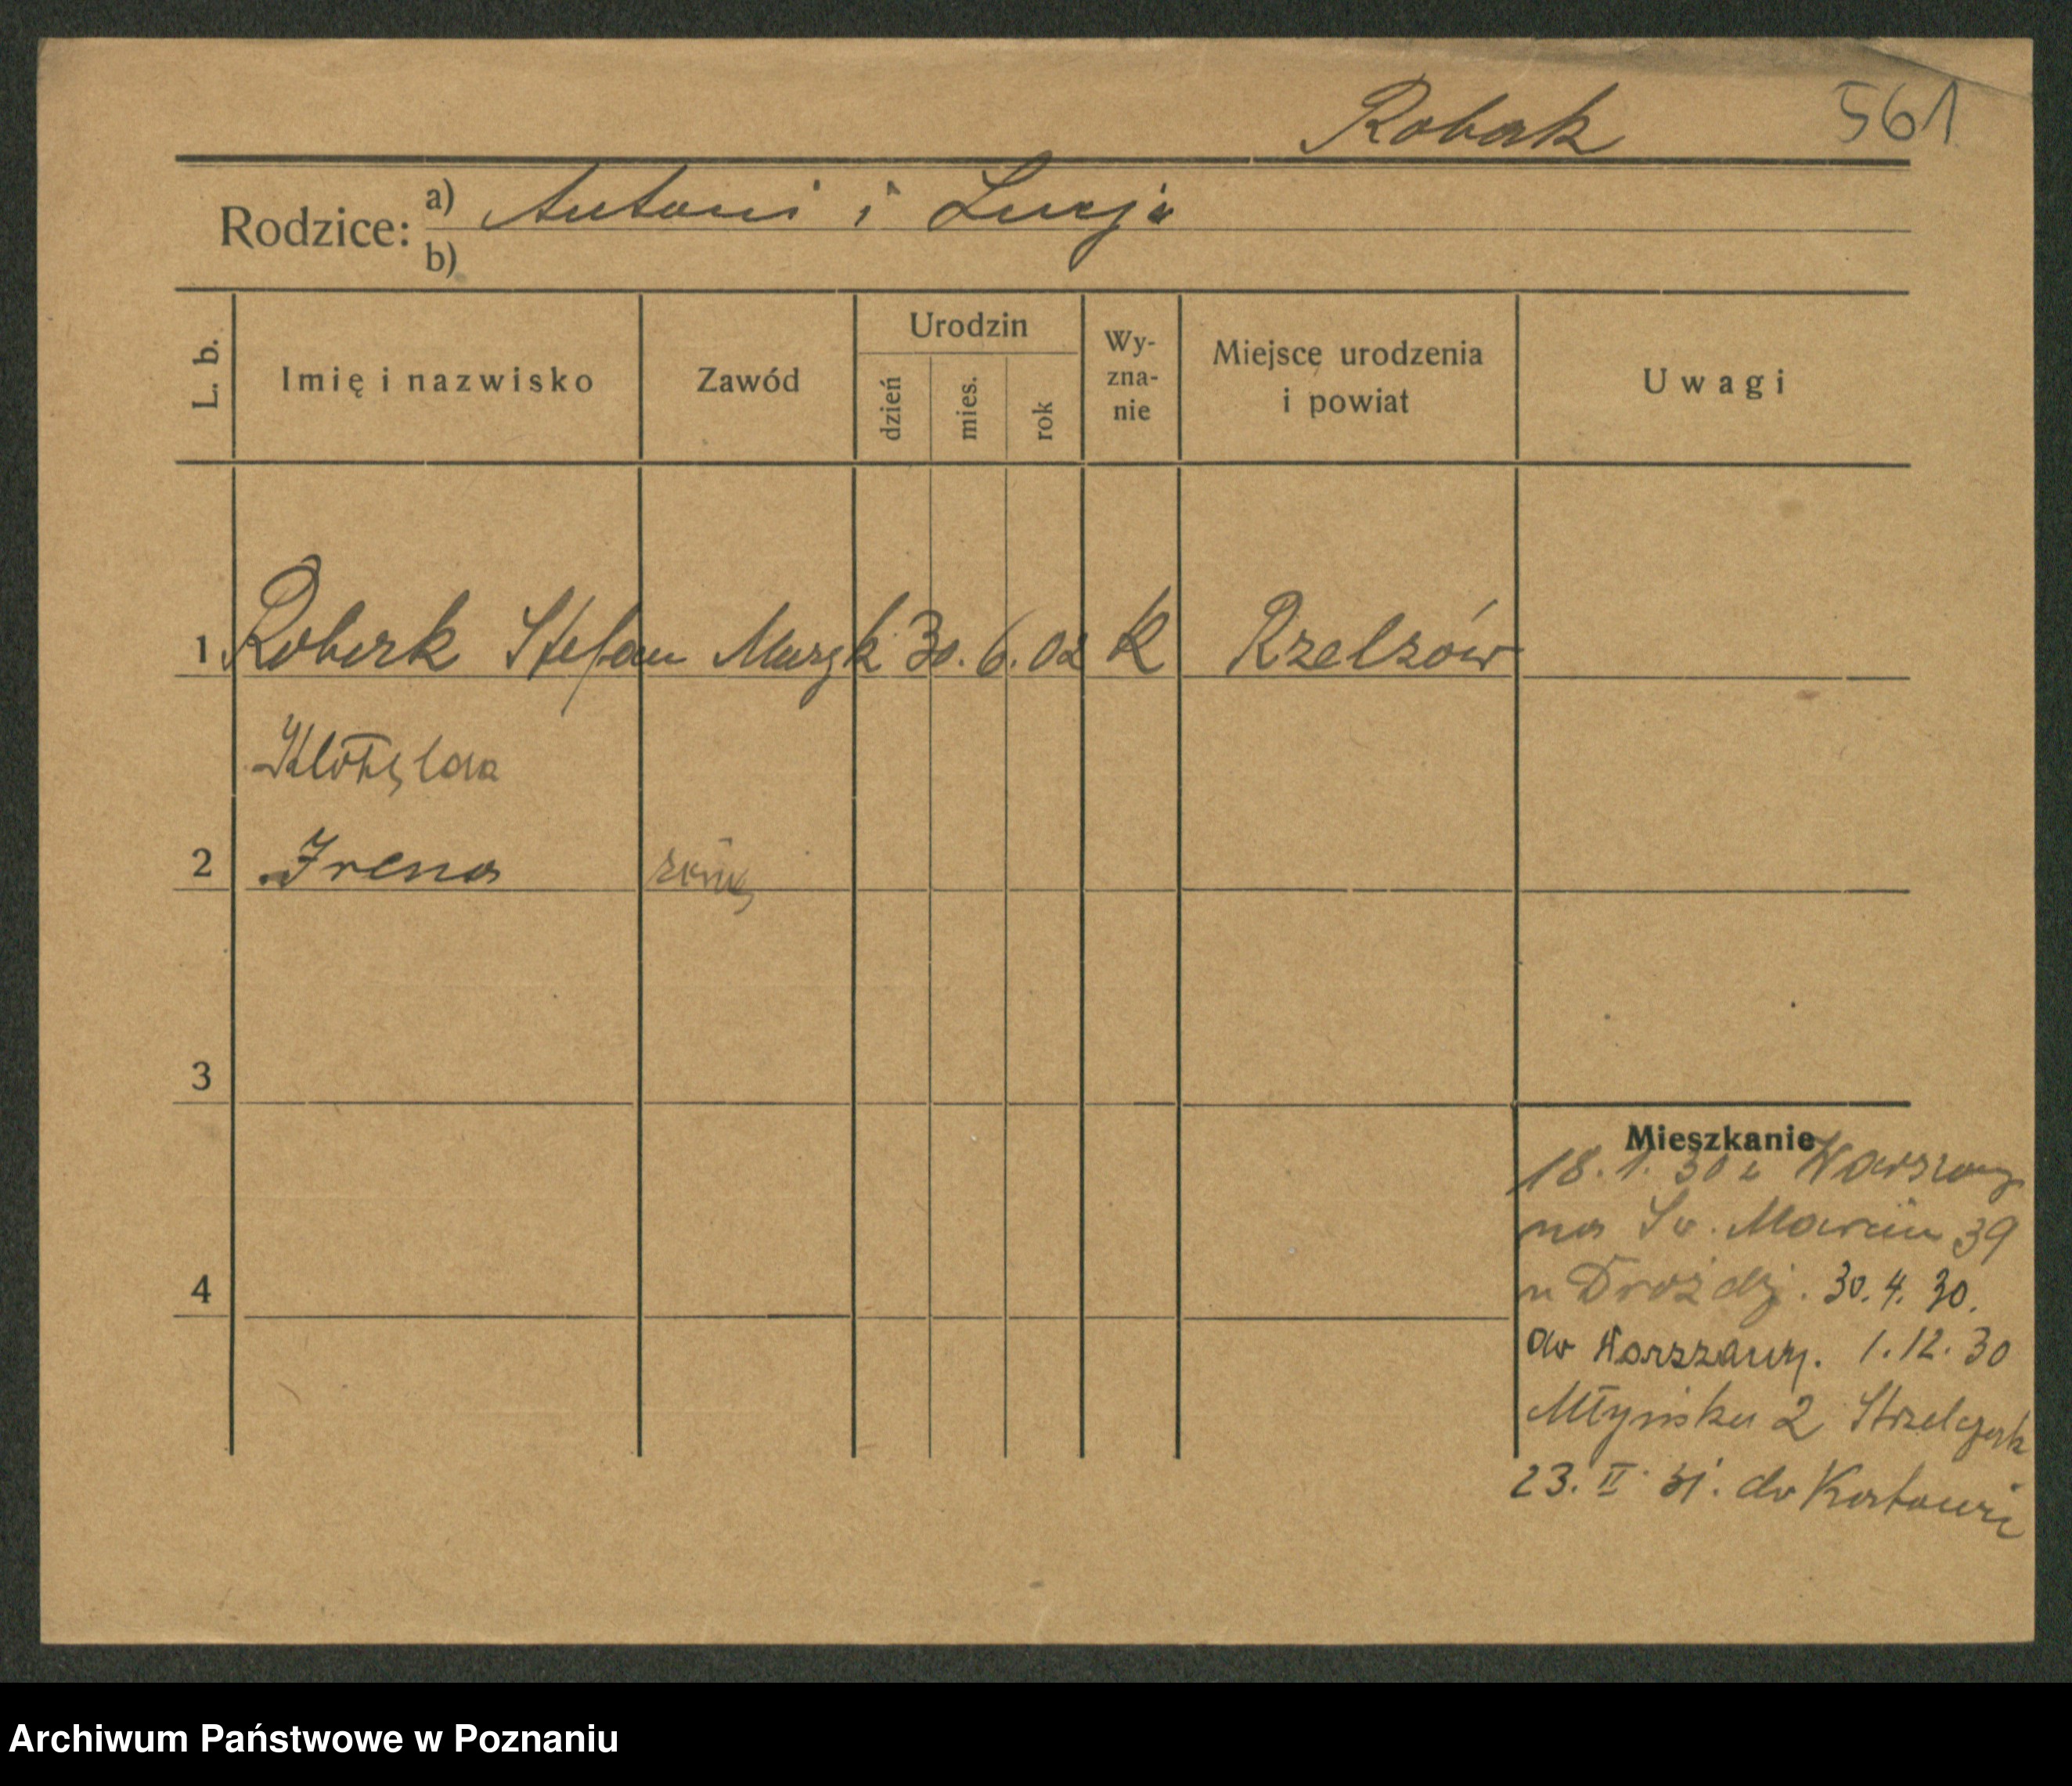 Robak 561
Rodzice: a) Antoni i Lucja
b)
L. b. Imię i nazwisko Zawód Urodzin dzień mies. rok Wy-zna-nie Miejsce urodzenia i powiat Uwagi
1 Robak Stefan Muzyk 30. 6. 02 K Rzelzów
2 Irena
3
4
Mieszkanie
18. 1. 30 z Warszawy
na Św. Marcin 39
u Drożdż. 30. 4. 30.
do Warszawy. 1. 12. 30
Młyńska 2 Strzelczak
23. II 31. do Katowic
Archiwum Państwowe w Poznaniu